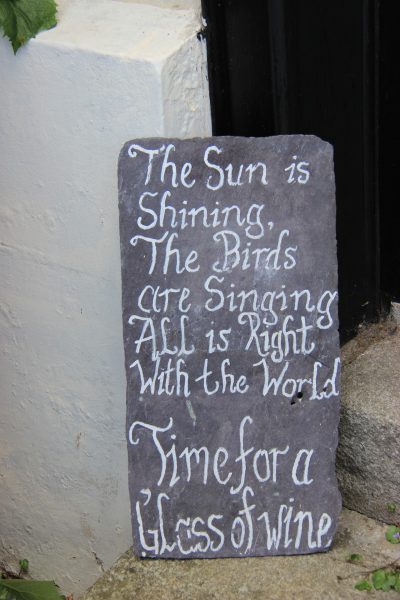 The Sun is
Shining,
The Birds
are Singing
All is Right
With the World
Time for a
Glass of wine.